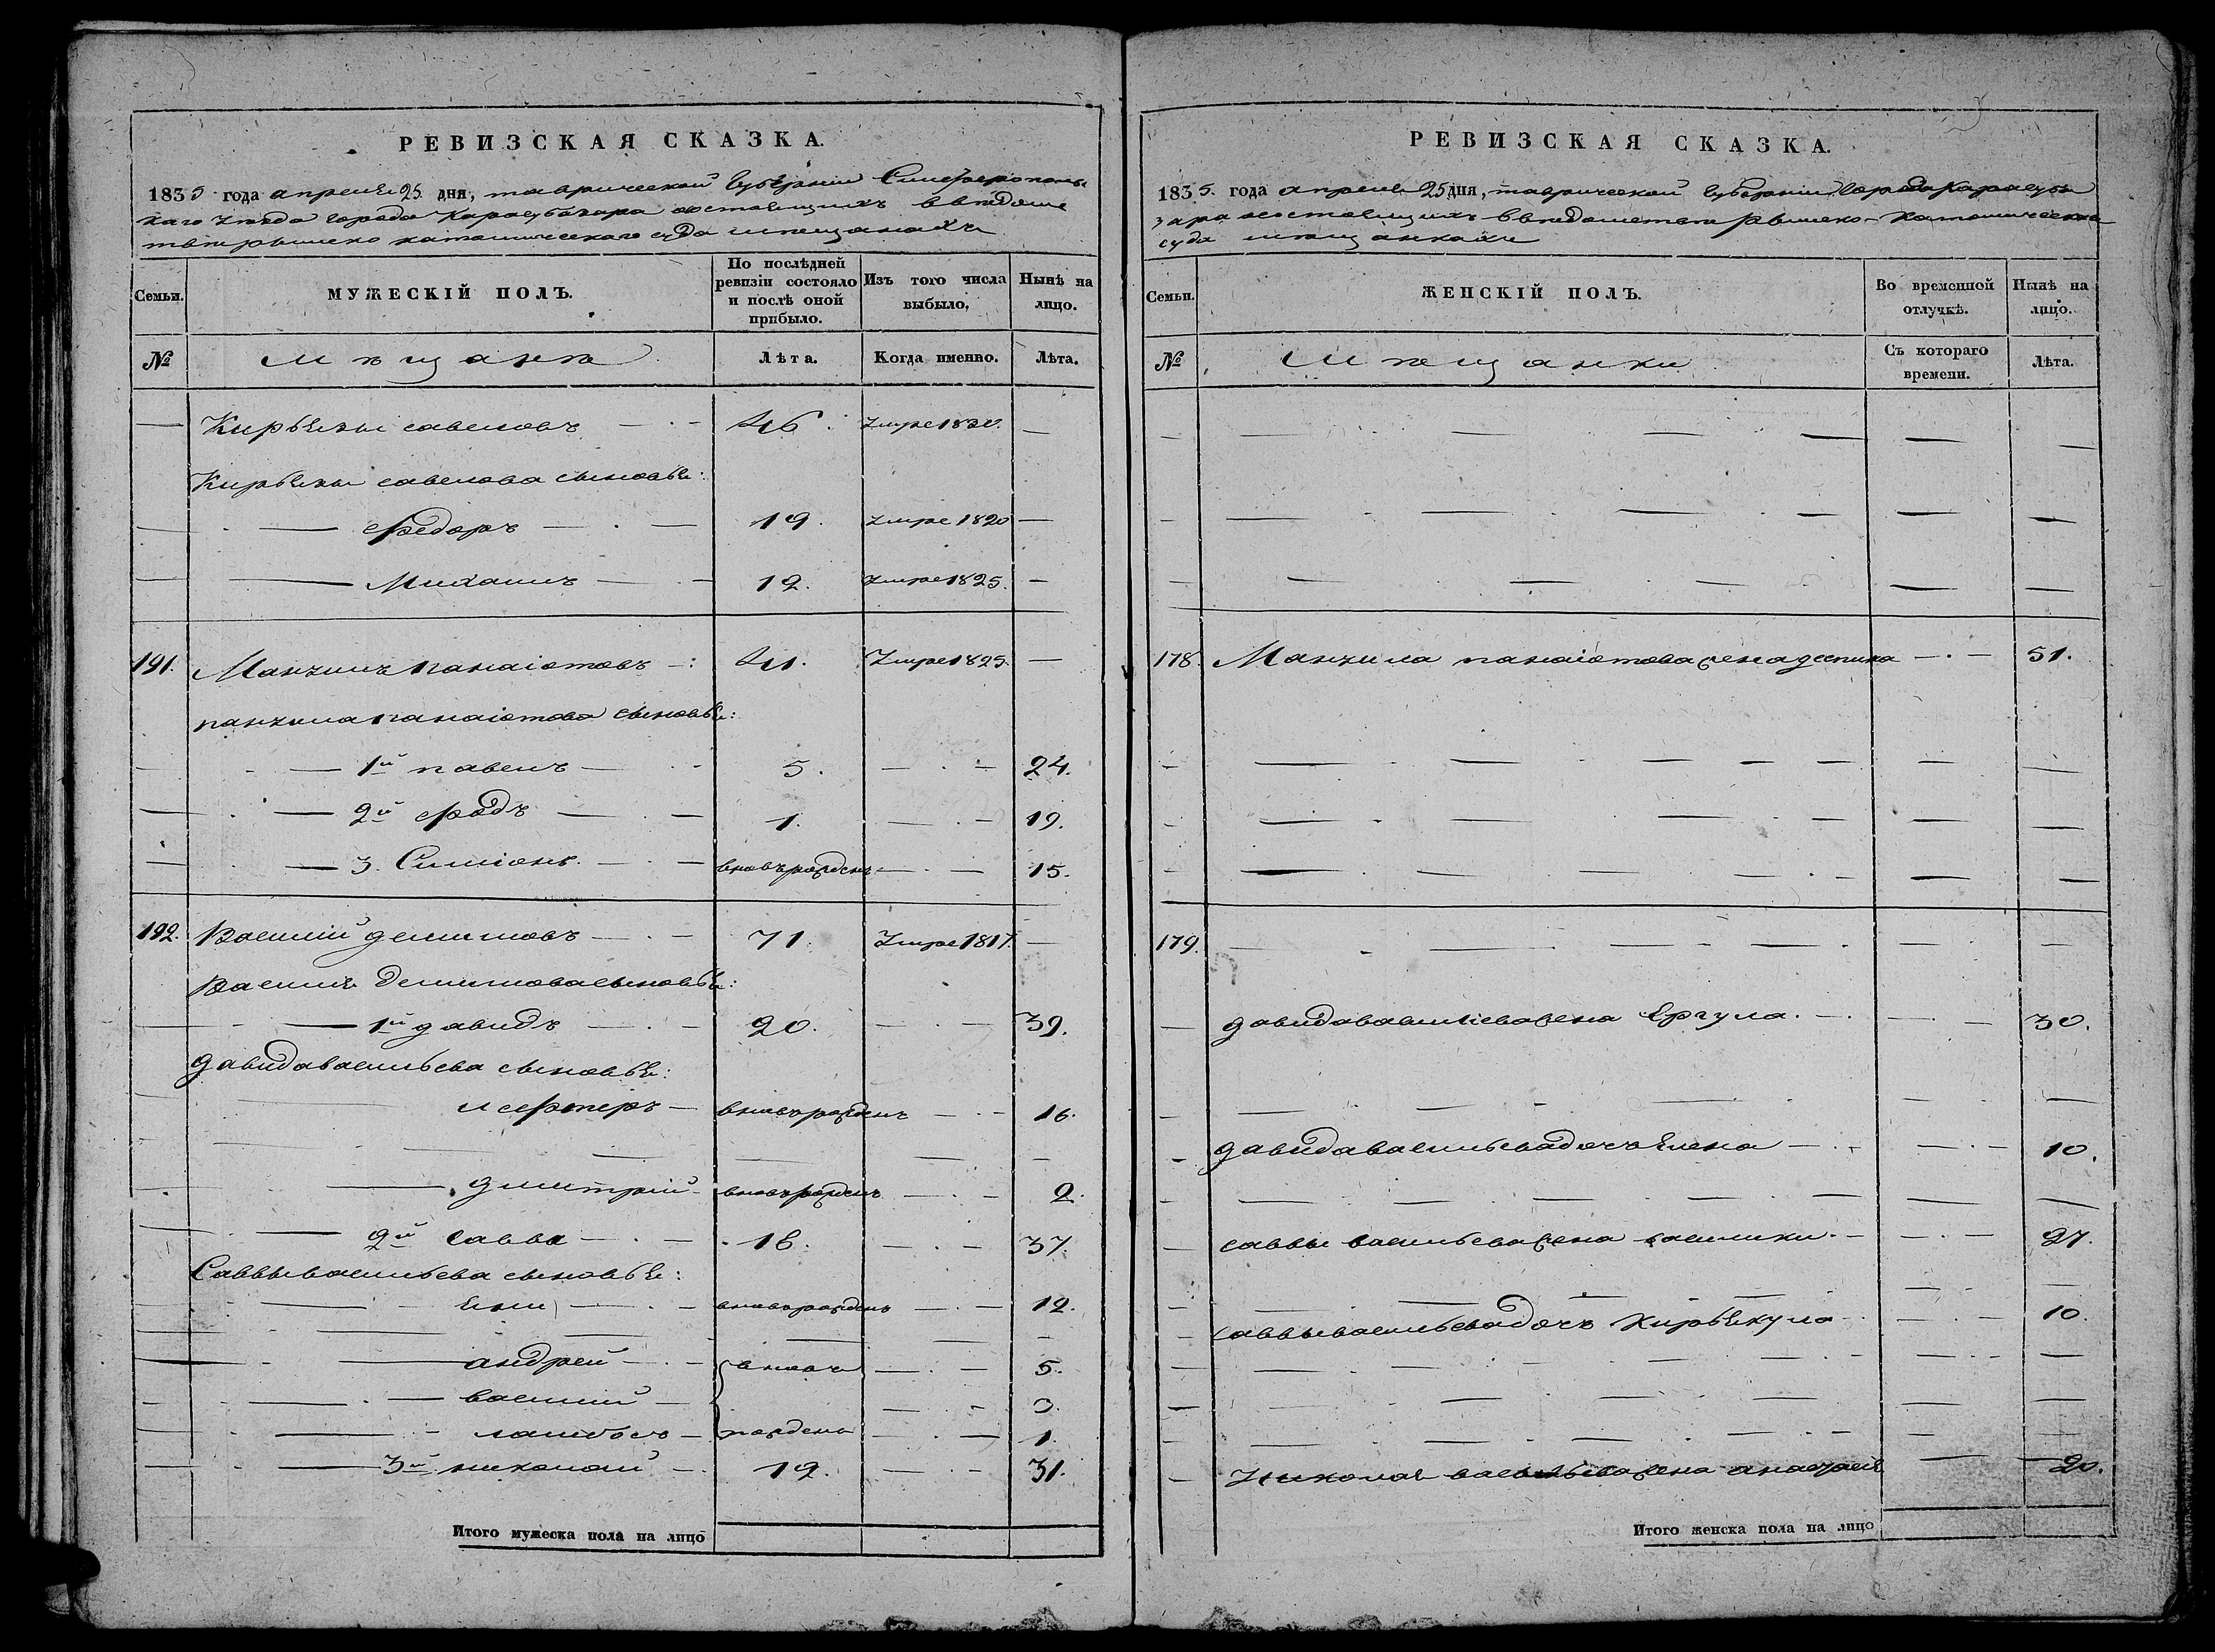 РЕВИЗСКАЯ СКАЗКА.
1835 года апреля 25 дня, таврической Губерніи Симферополь
скаго уѣзда города Карасубазара состоящихъ в вѣдомс
твѣ римско католическаго суда мѣщанахъ
Семьи.
МУЖЕСКІЙ ПОЛЪ.
По послѣдней ревизіи состояло и послѣ оной прибыло.
Изъ того числа выбыло.
Нынѣ на лицо.
№ мѣщанѣ Лѣта. Когда именно. Лѣта.
— Кирьяки савеловъ — 46. Умре 1830. —
Кирьяки савелова сыновья:
— Федоръ — 19. умре 1820 —
— Михаилъ — 12. умре 1825. —
191. Манзилъ панаіотовъ — 41. Умре 1825. —
панзила панаіотова сыновья:
— 1й павелъ — 5. — 24.
— 2й Фодъ — 1. — 19.
— 3. Симіонъ — вновь рожденъ — 15.
192. Василій делимовъ — 71. Умре 1817. —
Василія Делимова сыновья:
— 1й давидъ — 20. — 39.
давида васильева сыновья:
лефтеръ — вновь рожденъ — 16.
— дмитрій — вновь рожденъ — 2.
— 2й Савва — 18. — 37.
Саввы васильева сыновья:
— вновь рожденъ — 12.
— андрей — вновь — 5.
— василій — 3.
— рождены — 1.
— 3й николай — 12. — 31.
Итого мужеска пола на лицо
РЕВИЗСКАЯ СКАЗКА.
1835. года апреля 25 дня, таврической Губерніи Города Карасуба
зара состоящихъ в вѣдомствѣ римско-католическаго
суда мѣщанкахъ
Семьи.
ЖЕНСКІЙ ПОЛЪ.
Во временной отлучкѣ.
Нынѣ на лицо.
№ Мѣщанки Съ котораго времени. Лѣта.
178. Манзила панаіотова жена деспина — 51.
179. —
— давида василіева жена Ергула. — 30.
— давида васильева дочь Елена — 10.
— саввы васильева жена василики. — 27.
— саввы васильева дочь Кирьякула — 10.
— Николая васильева жена анастасія — 20.
Итого женска пола на лицо